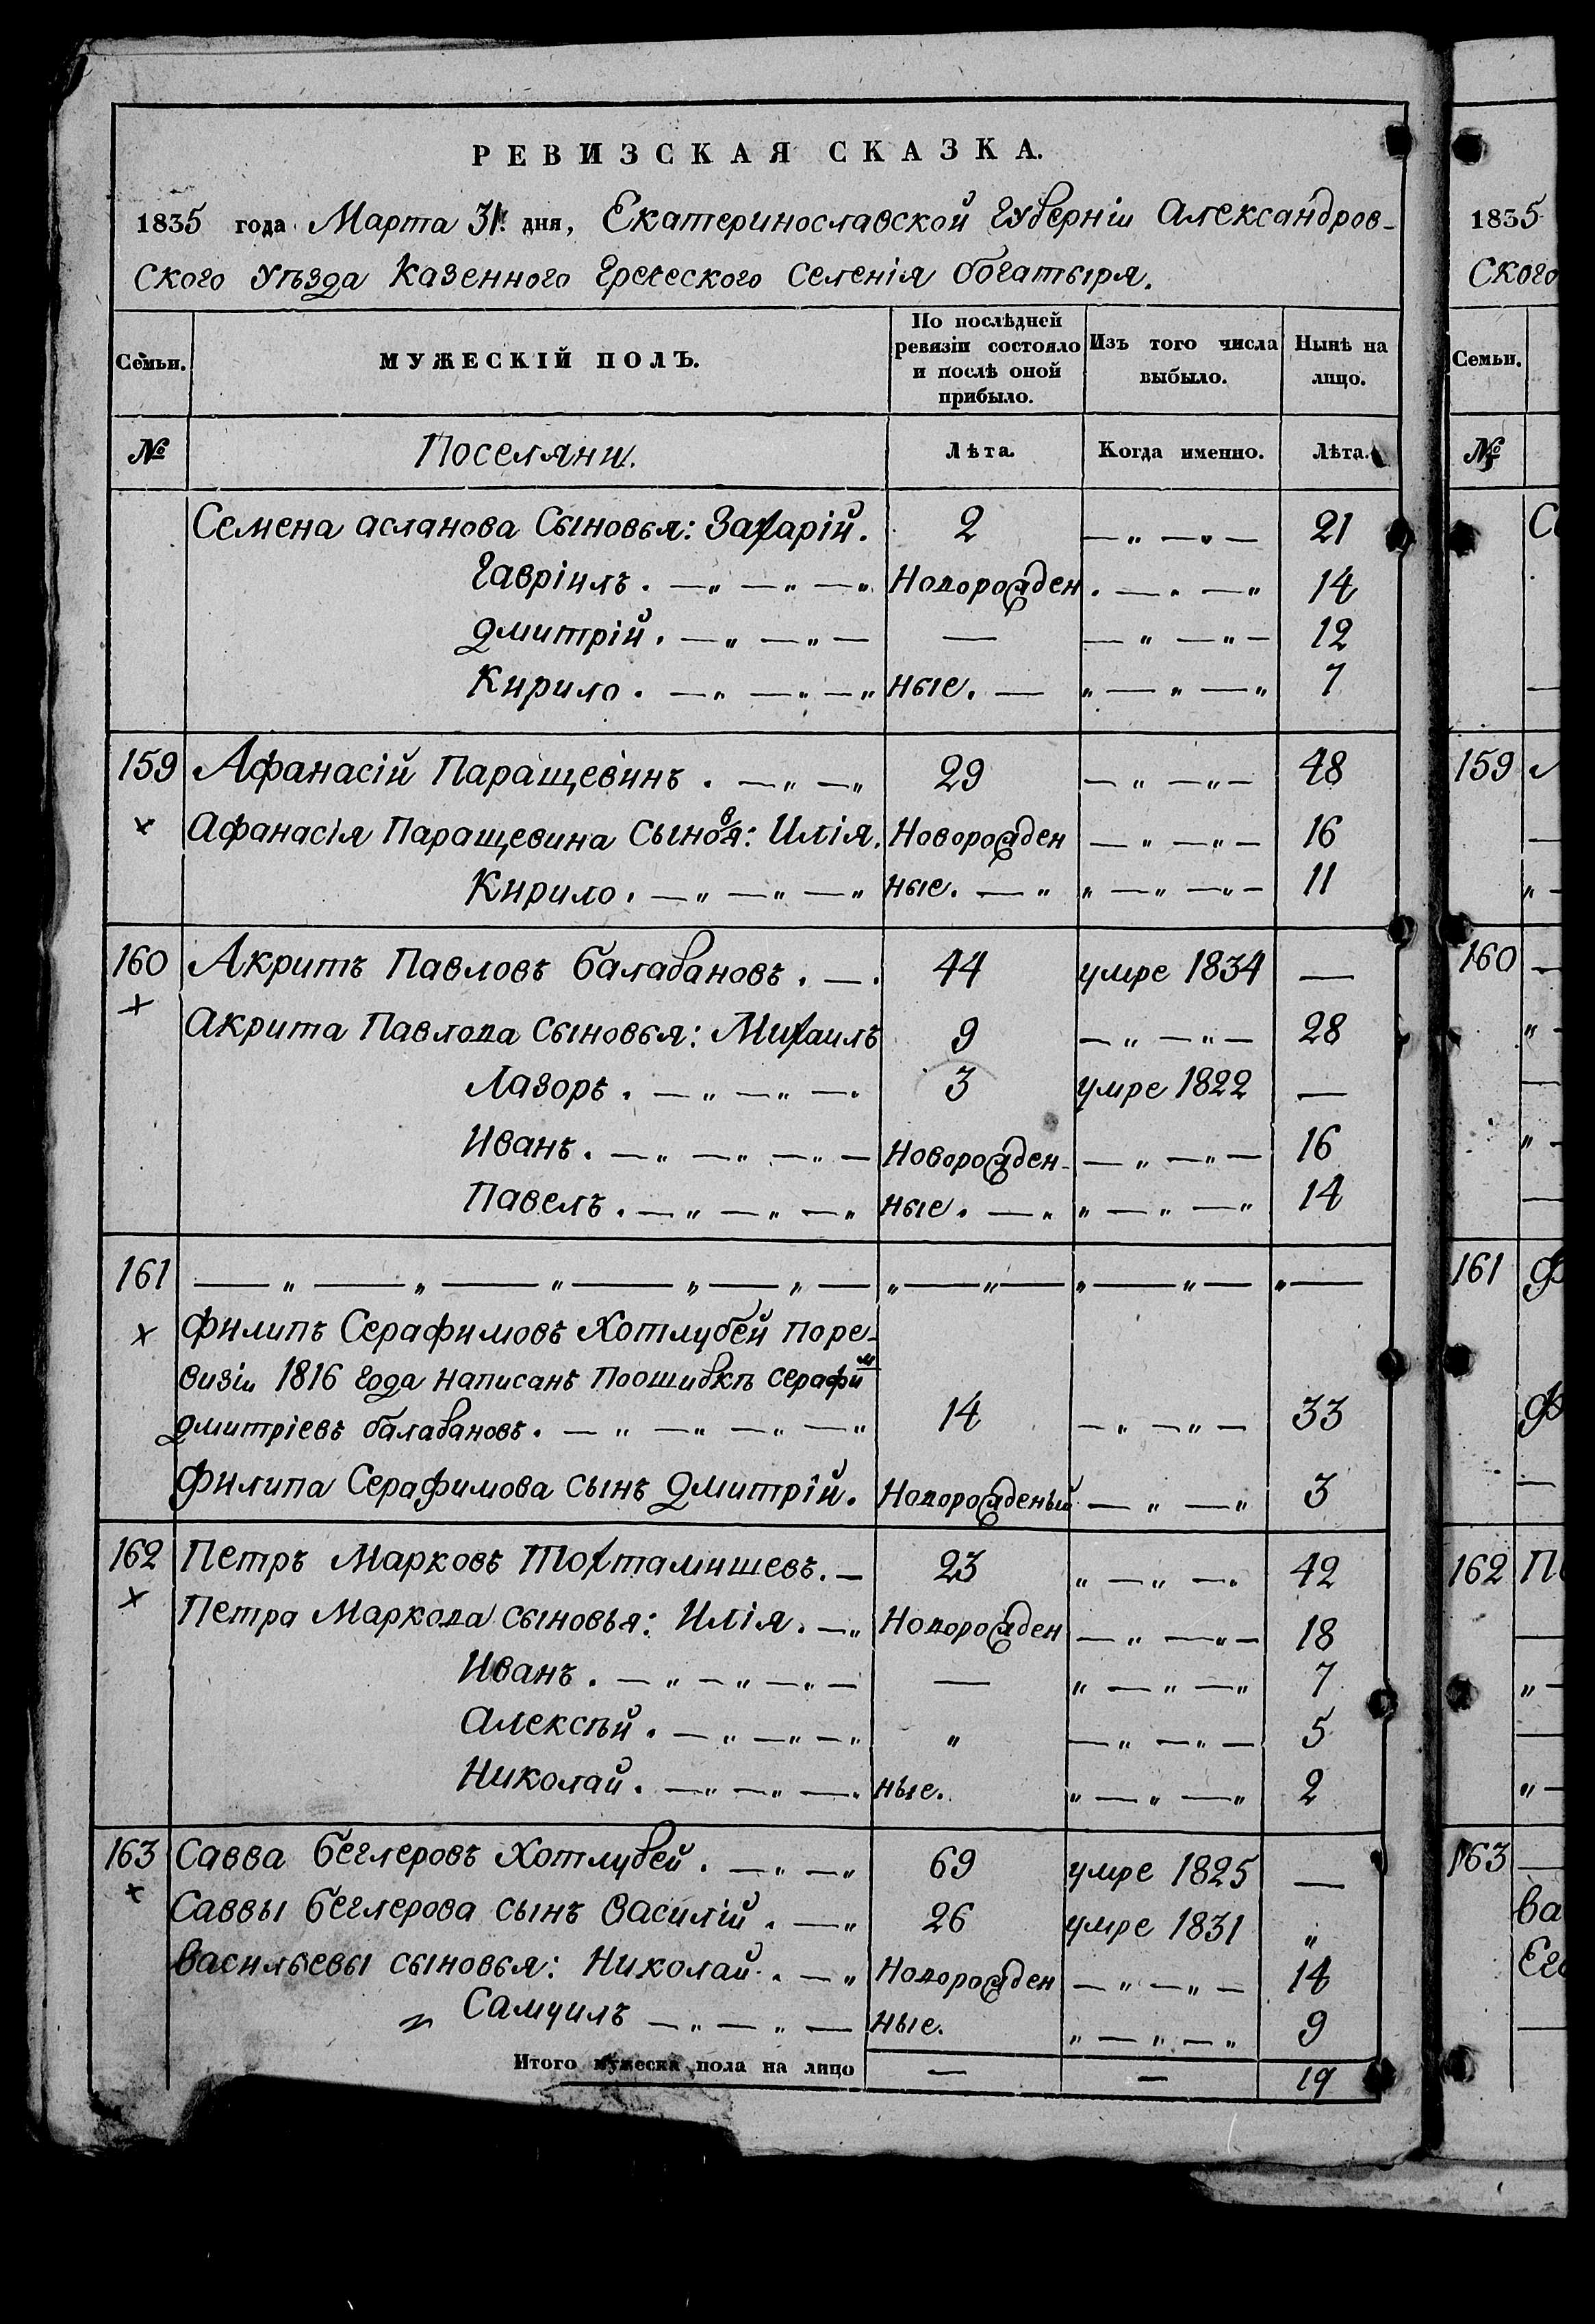 РЕВИЗСКАЯ СКАЗКА.
1835 года Марта 31. дня, Екатеринославской Губерніи Александров-
ского Уѣзда Казенного Греческого Селенія Богатыря.
Семьи. МУЖЕСКІЙ ПОЛЪ. По послѣдней ревизіи состояло и послѣ оной прибыло. Изъ того числа выбыло. Нынѣ на лицо.
№ Поселяни. Лѣта. Когда именно. Лѣта.
Семена Асланова Сыновья: Захарій. 2 — „ — „ — 21
Гавріилъ. — „ — „ — „ Новорожден. — „ — „ 14
Дмитрій. — „ — „ — — — „ — „ — 12
Кирило. — „ — „ — „ ные. — „ — „ — „ 7
159 Афанасій Паращевинъ. — „ — „ 29 — „ — „ — 48
× Афанасія Паращевина Сыновя: Илія. Новорожден — „ — „ — 16
Кирило. — „ — „ — „ ные. — „ „ — „ — „ — 11
160 Акритъ Павловъ Балабановъ. — . 44 умре 1834 —
× Акрита Павлова Сыновья: Михаилъ 9 — „ — „ — 28
Лазорь. — „ — „ — . 3 умре 1822 —
Иванъ. — „ — „ — „ — Новорожден- — „ — „ — 16
Павелъ. — „ — „ — „ ные. — „ „ — „ — „ 14
161 — „ — „ — „ — „ — „ — „ — „ — „ — „ — „ —
× Филипъ Серафимовъ Хотлубей поре-
визіи 1816 года написанъ поошибкѣ Серафим
Дмитріевъ Балабановъ. — „ — „ — „ — „ 14 — „ — „ — 33
Филипа Серафимова сынъ Дмитрій. Новорожденый — „ — „ 3
162 Петръ Марковъ Тохтамишевъ. — 23 „ — „ — „ 42
× Петра Маркова сыновья: Илія. — „ Новорожден — „ — „ — 18
Иванъ. — „ — „ — „ — — „ — „ — „ 7
Алексѣй. — „ — „ — „ „ — „ — „ — 5
Николай. — „ — „ — . ные. „ — „ — „ 2
163 Савва Беглеровъ Хотлубей. — „ — „ 69 умре 1825 —
× Саввы Беглерова сынъ Василій. — „ 26 умре 1831 „
Васильевы сыновья: Николай. — „ Новорожден — „ — „ — 14
„ Самуилъ — „ — „ — ные. „ — „ — „ 9
Итого мужеска пола на лицо — — 19
1835
ского
Семьи.
№
159
160
161
162
163